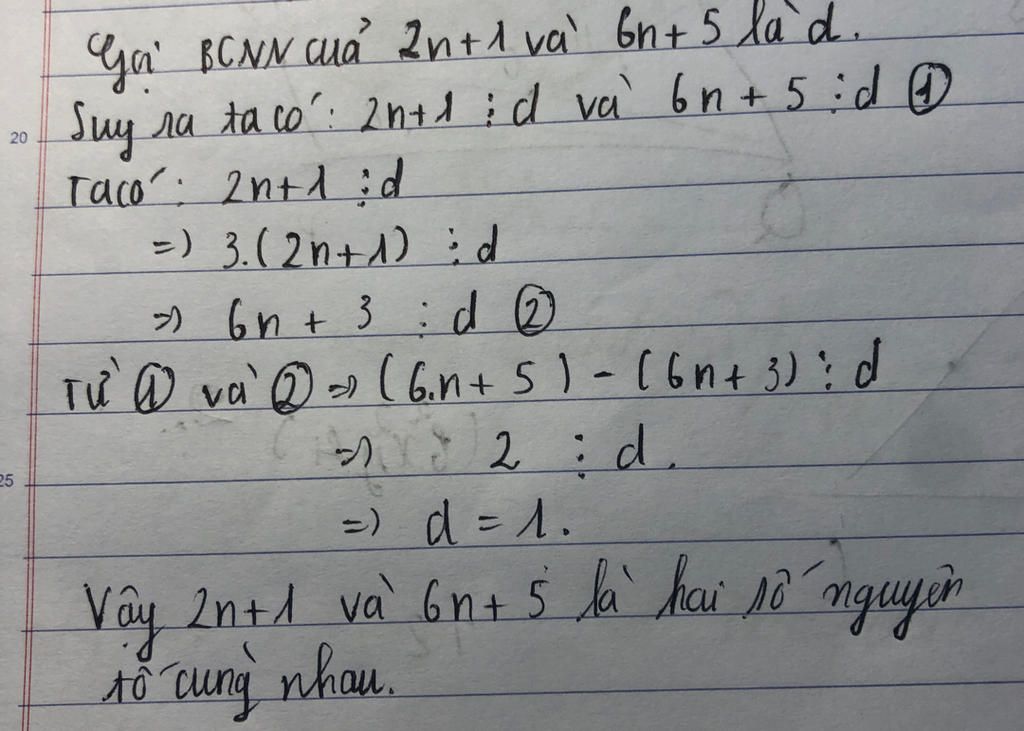 Gọi BCNN của 2n+1 và 6n+5 là d.
20 Suy ra ta có: 2n+1 ⋮ d và 6n + 5 ⋮ d ①
Ta có: 2n+1 ⋮ d
=) 3.(2n+1) ⋮ d
=) 6n + 3 ⋮ d ②
Từ ① và ② => (6.n + 5) - (6n + 3) ⋮ d
=) 2 ⋮ d.
25
=) d = 1.
Vậy 2n+1 và 6n+5 là hai số nguyên
tố cùng nhau.